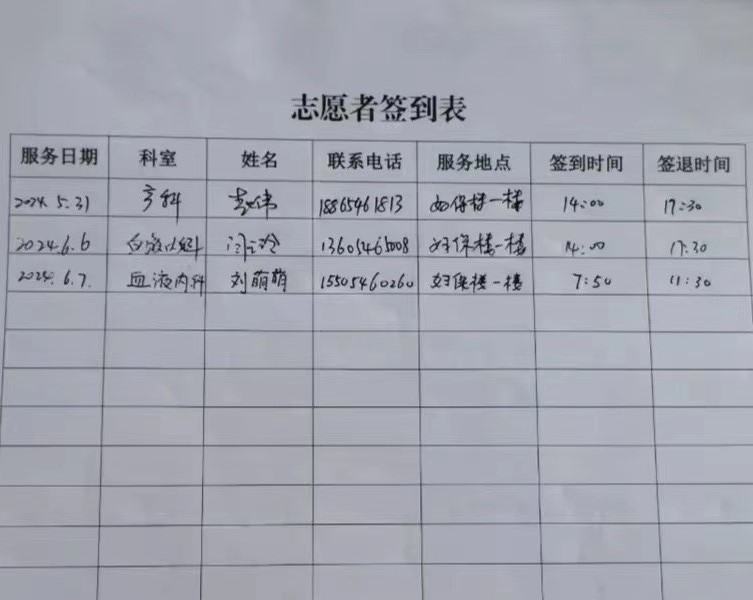 志愿者签到表
服务日期 科室 姓名 联系电话 服务地点 签到时间 签退时间
2024.5.31 产科 伟 18865461813 妇保楼一楼 14:00 17:30
2024.6.6 玲 13605465008 妇保楼一楼 14:00 17:30
2024.6.7. 血液内科 刘萌萌 15505460260 妇保楼一楼 7:50 11:30